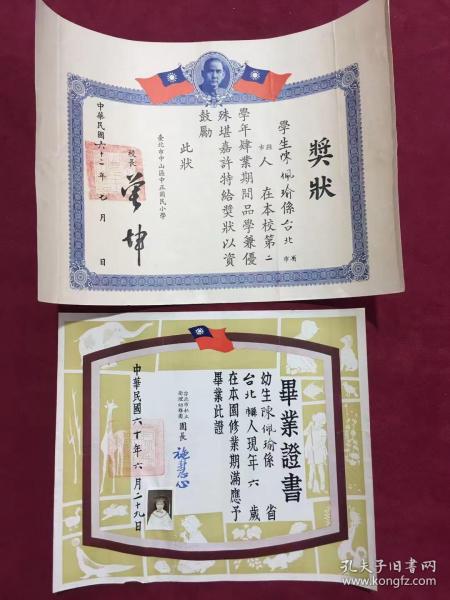 獎狀
學生陳佩瑜係台北市
縣市人在本校第二
學年肄業期間品學兼優
殊堪嘉許特給獎狀以資
鼓勵
此狀
臺北市中山區中正國民小學
校長
中華民國六十二年七月日
畢業證書
幼生陳佩瑜係省
台北縣人現年六歲
在本園修業期滿應予
畢業此證
園長
中華民國六十年六月二十九日
孔夫子旧书网
www.kongfz.com